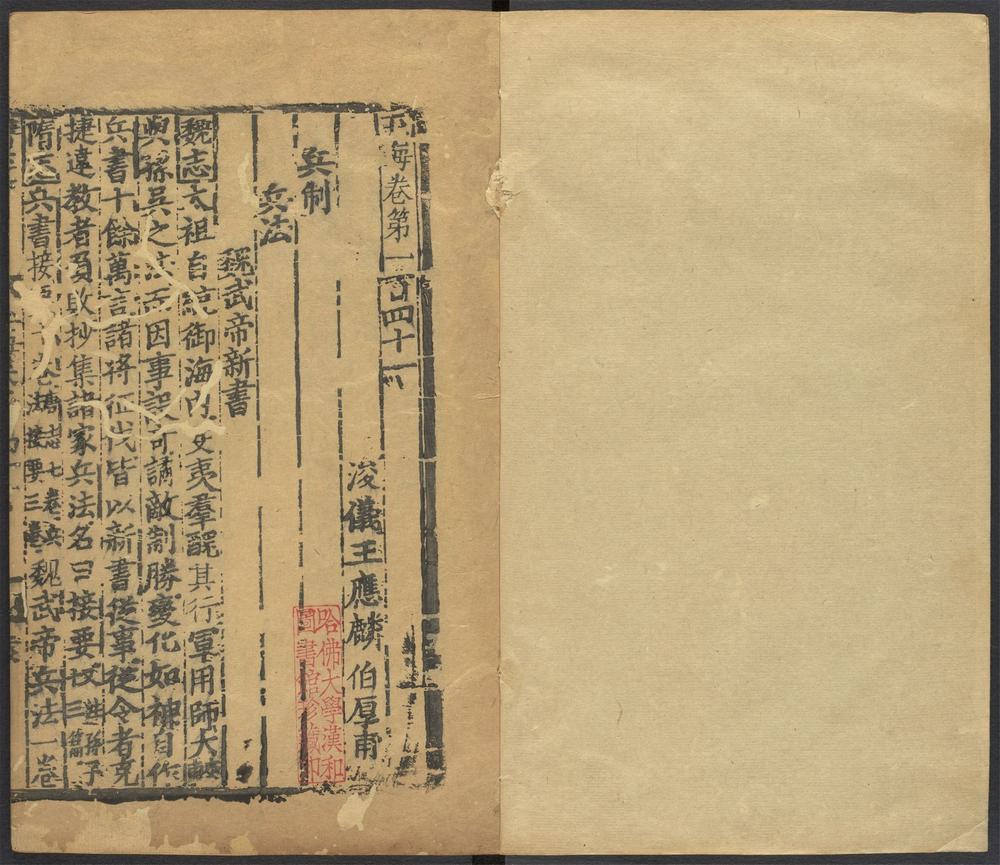 玉海卷第一百四十一
浚儀王應麟伯厚甫
兵制
兵法
魏武帝新書
魏志太祖自統御海內芟夷羣醜其行軍用師大較
與孫吳之法而因事設奇譎敵制勝變化如神自作
兵書十餘萬言諸將征伐皆以新書從事從令者克
捷違教者負敗抄集諸家兵法名曰接要 又註孫子十三篇
隋志兵書接要十卷唐志七卷兵法接要三卷魏武帝兵法一卷
哈佛大學漢和
圖書館珍藏印